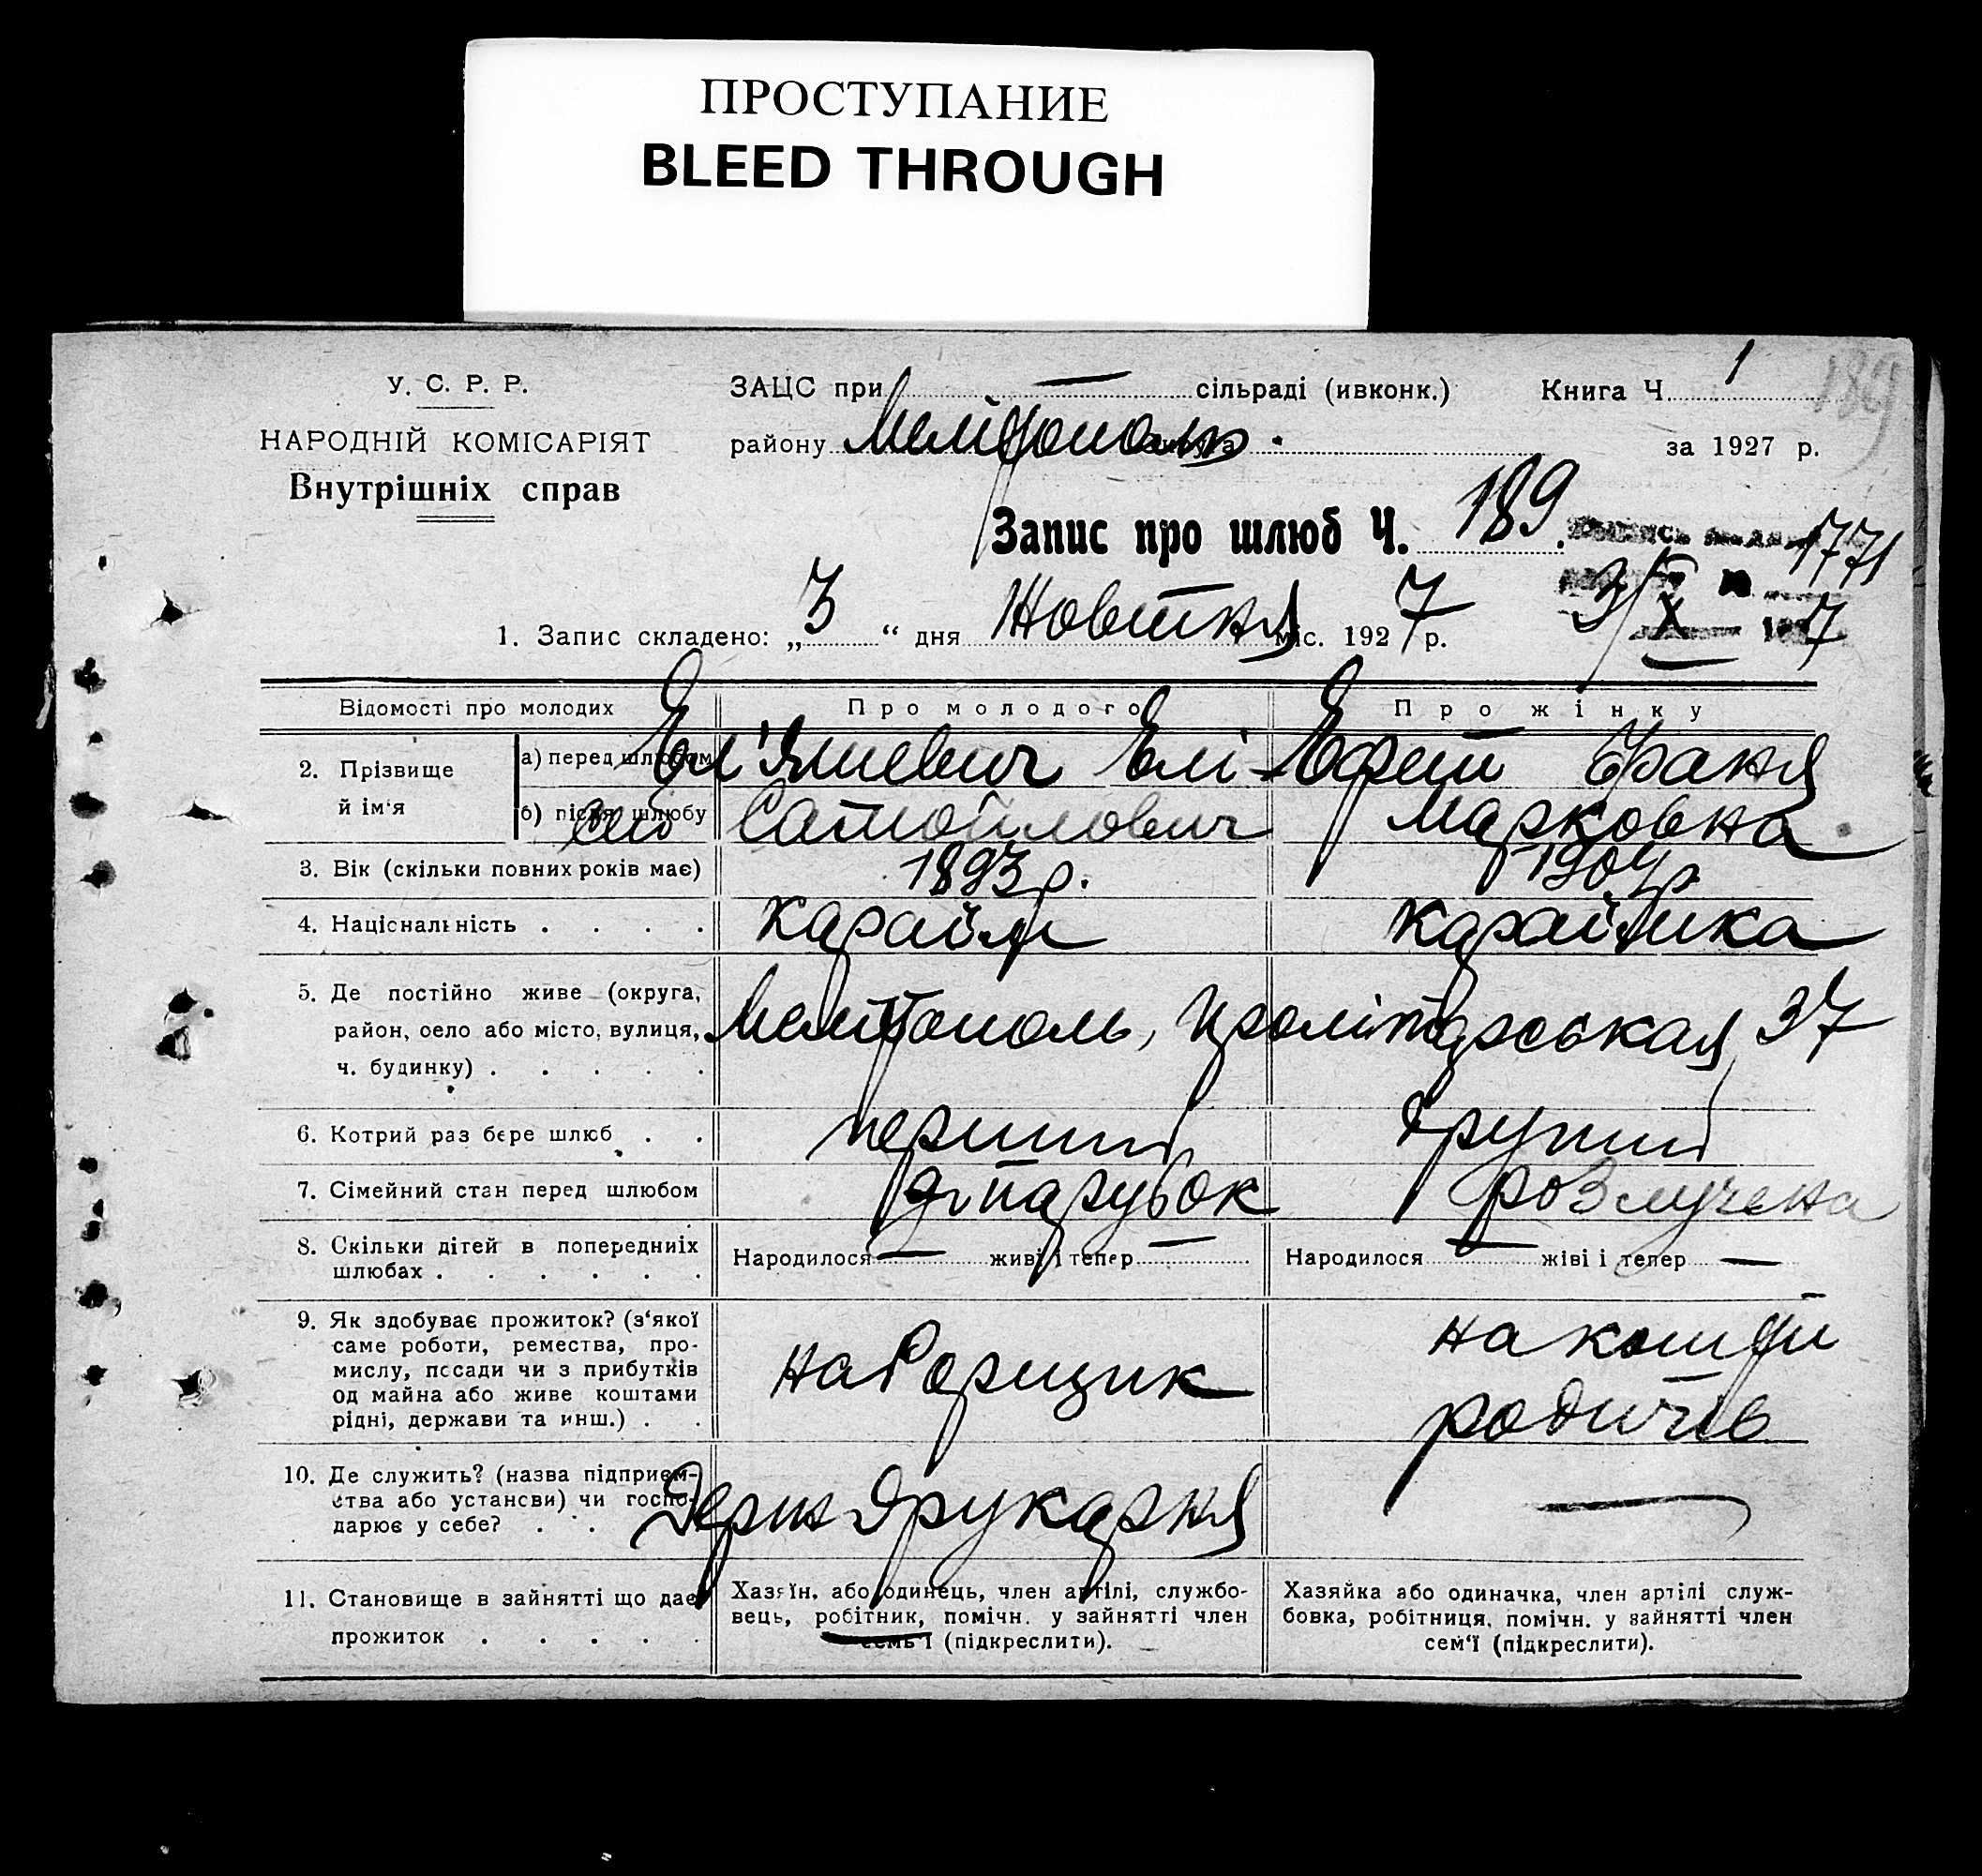 ПРОСТУПАНИЕ
BLEED THROUGH
У. С. Р. Р.
НАРОДНІЙ КОМІСАРІЯТ
Внутрішніх справ
ЗАЦС при — сільраді (ивконк.) Книга Ч. 1
189
району Мелітополь. за 1927 р.
Запис про шлюб Ч. 189.
1771
3/X 7
1. Запис складено: „3“ дня Жовтня міс. 1927 р.
Відомості про молодих Про молодого Про жінку
2. Прізвище й ім‘я
а) перед шлюбом Ел'яшевич Елі- Ефет Франя
б) після шлюбу Самойлович Марковна
3. Вік (скільки повних років має) 1893 р. 1904 р
4. Національність . . . . караїм караїмка
5. Де постійно живе (округа,
район, село або місто, вулиця, Мелітополь, Пролітарськая 37
ч. будинку) . . . . .
6. Котрий раз бере шлюб . . перший другий
7. Сімейний стан перед шлюбом парубок розлучена
8. Скільки дітей в попередніх
шлюбах . . . . . . Народилося — живі і тепер — Народилося — жіві і тепер —
9. Як здобуває прожиток? (з‘якої
саме роботи, ремества, про-
мислу, посади чи з прибутків
од майна або живе коштами
рідні, держави та инш.) . .
наборщик
на кошти
родичів
10. Де служить? (назва підприєм-
ства або установи) чи госпо-
дарює у себе? . . .
Держ друкарня —
11. Становище в зайнятті що дає
прожиток . . . . .
Хазяїн, або одинець, член артілі, службо-
вець, робітник, помічн. у зайнятті член
семь‘ї (підкреслити).
Хазяйка або одиначка, член артілі служ-
бовка, робітниця, помічн. у зайнятті член
сем‘ї (підкреслити).